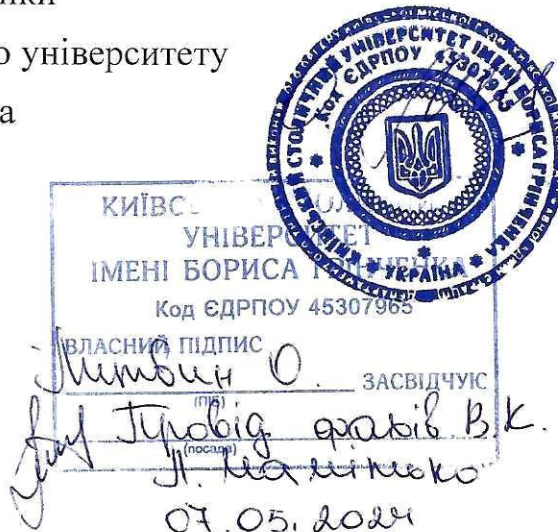 о університету
а
КИЇВСЬКИЙ СТОЛИЧНИЙ УНІВЕРСИТЕТ ІМЕНІ БОРИСА ГРІНЧЕНКА
Код ЄДРПОУ 45307965
* УКРАЇНА *
УНІВЕРСИТЕТ
ІМЕНІ БОРИСА ГРІНЧЕНКА
Код ЄДРПОУ 45307965
ВЛАСНИЙ ПІДПИС
Литвин О. ЗАСВІДЧУЮ
(ПІБ)
Провід. фахів В.К.
(посада)
07.05.2024